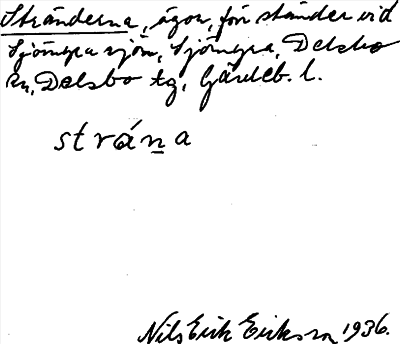 Stränderna, ägor, för stränder vid
Sjömyra sjön, Sjömyra, Delsbo
sn, Delsbo tg, Gävleb. l.
strána
Nils Erik Eriksson 1936.